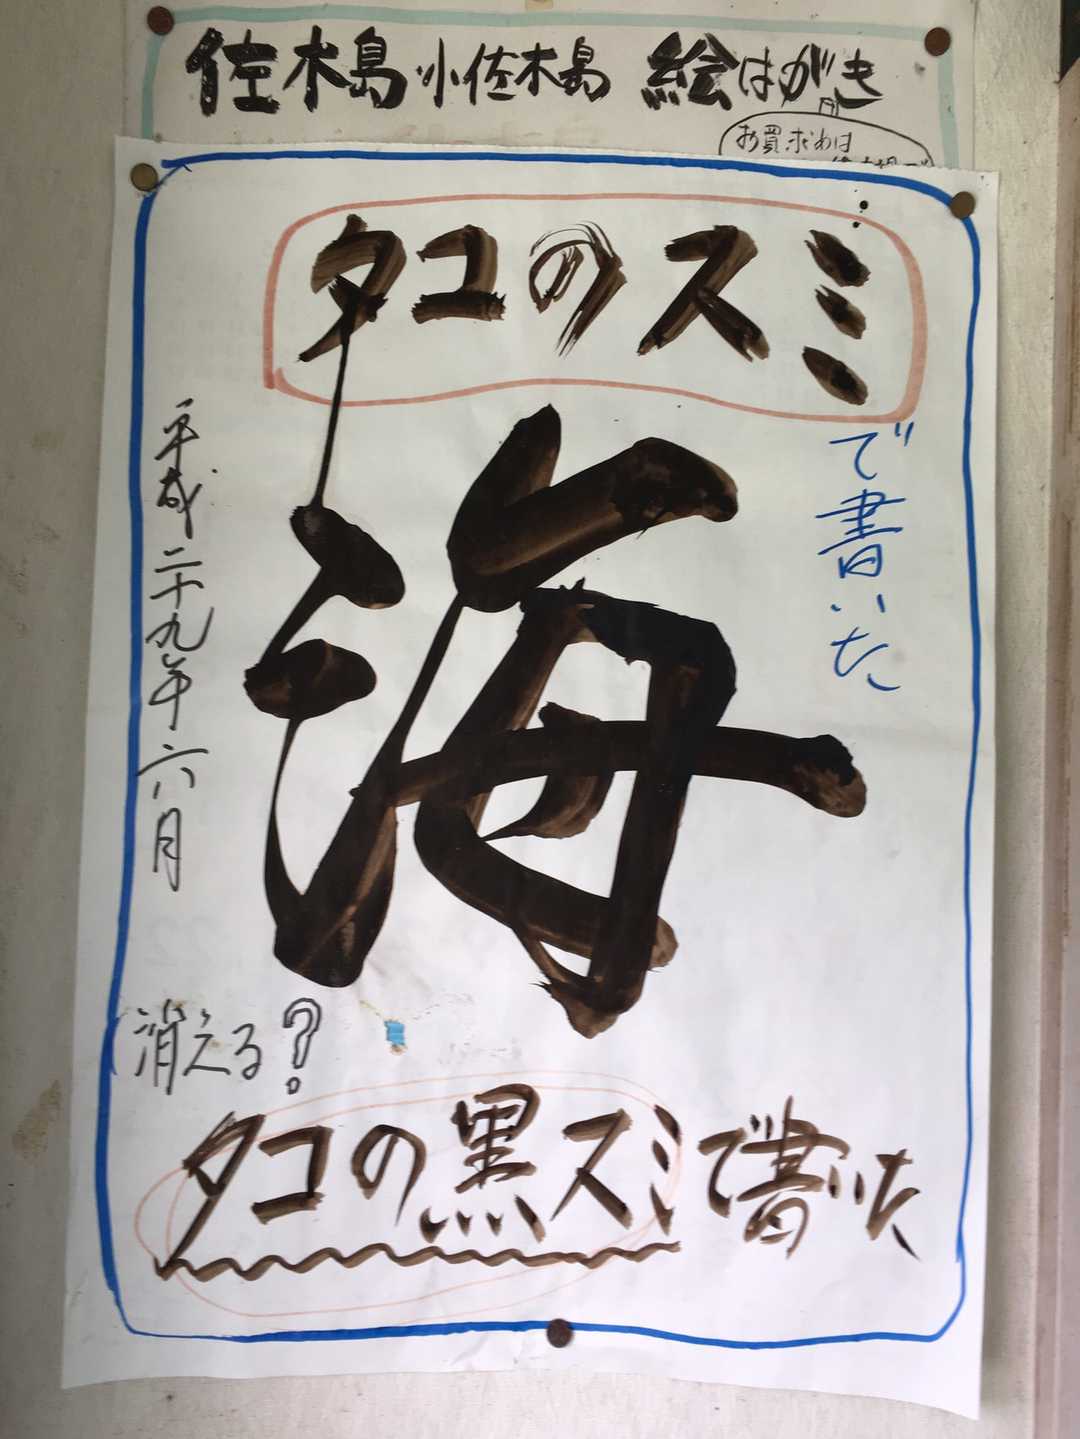 佐木島 小佐木島 絵はがき
お買求めは
タコのスミ
で書いた
海
平成二十九年六月
消える?
タコの黒スミで書いた